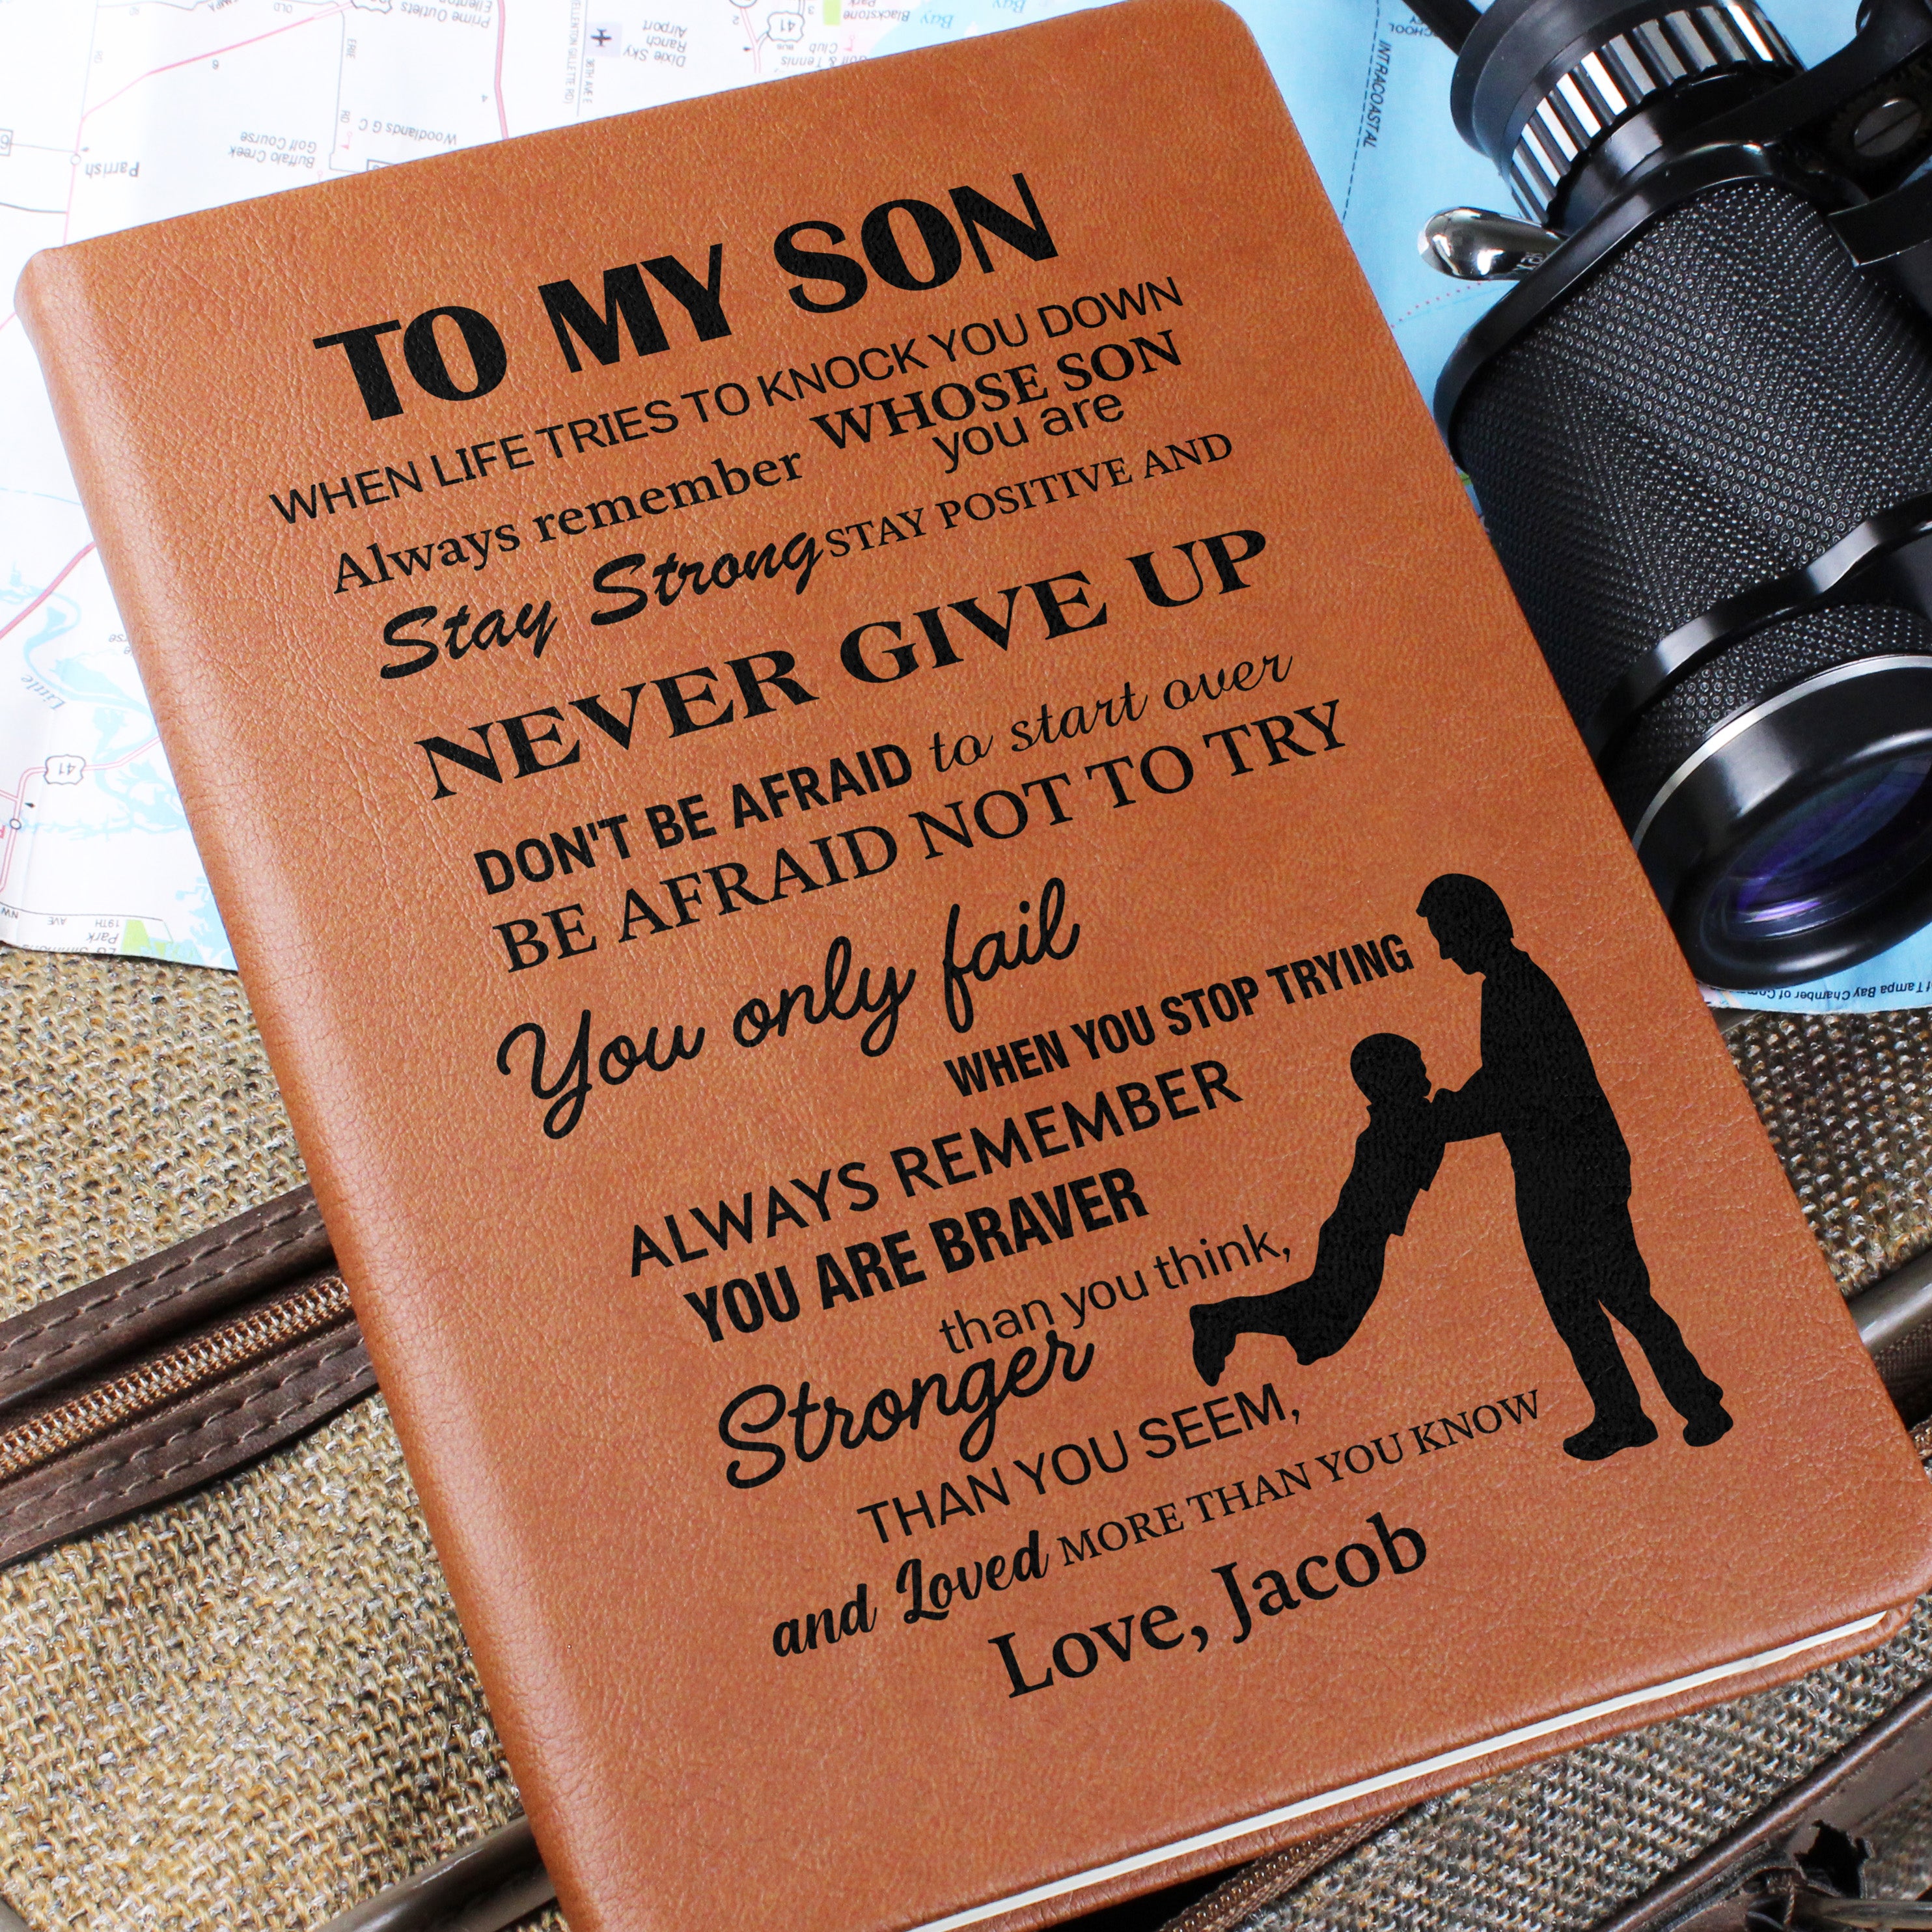 TO MY SON
WHEN LIFE TRIES TO KNOCK YOU DOWN
Always remember WHOSE SON
you are
Stay Strong STAY POSITIVE AND
NEVER GIVE UP
DON'T BE AFRAID to start over
BE AFRAID NOT TO TRY
You only fail
WHEN YOU STOP TRYING
ALWAYS REMEMBER
YOU ARE BRAVER
than you think,
Stronger
THAN YOU SEEM,
and Loved MORE THAN YOU KNOW
Love, Jacob
Prime Outlets
Blackstone
Park
Bay
Bay
41
Dixie Sky
Ranch
Airport
Woodlands G C
Buffalo Creek
Golf Course
Parrish
ERIE
RD
OLD
INTRACOASTAL
Little
41
19TH
AVE
NW
Park
Tampa Bay Chamber of Com